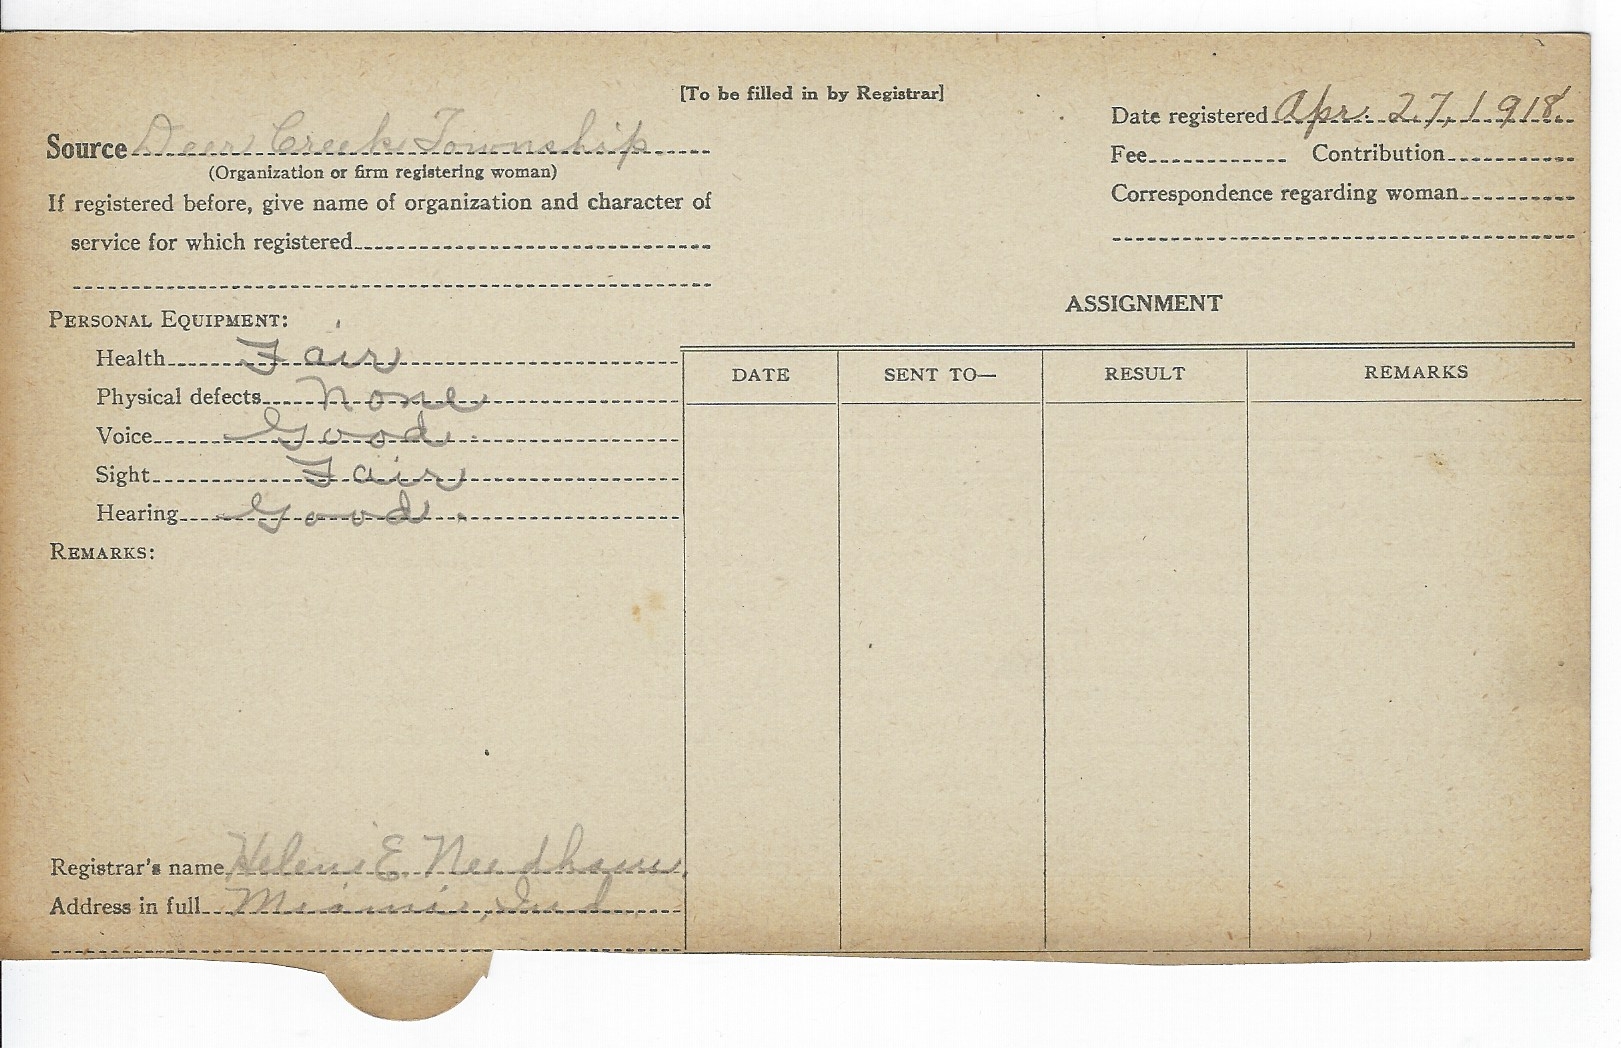 [To be filled in by Registrar]
Source Deer Creek Township
(Organization or firm registering woman)
If registered before, give name of organization and character of
service for which registered
Date registered Apr. 27, 1918.
Fee Contribution
Correspondence regarding woman
PERSONAL EQUIPMENT:
Health Fair
Physical defects None
Voice Good.
Sight Fair
Hearing Good.
REMARKS:
Registrar's name Helen E. Needham.
Address in full Miami, Ind.
ASSIGNMENT
DATE SENT TO— RESULT REMARKS